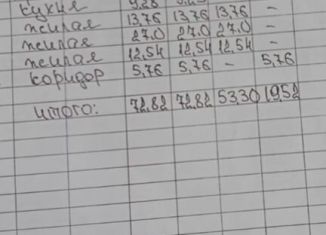 кухня 9,28
жилая 13,76 13,76 13,76 -
жилая 27,0 27,0 27,0 -
жилая 12,54 12,54 12,54 -
коридор 5,76 5,76 - 5,76
итого: 72,82 72,82 53,30 19,52